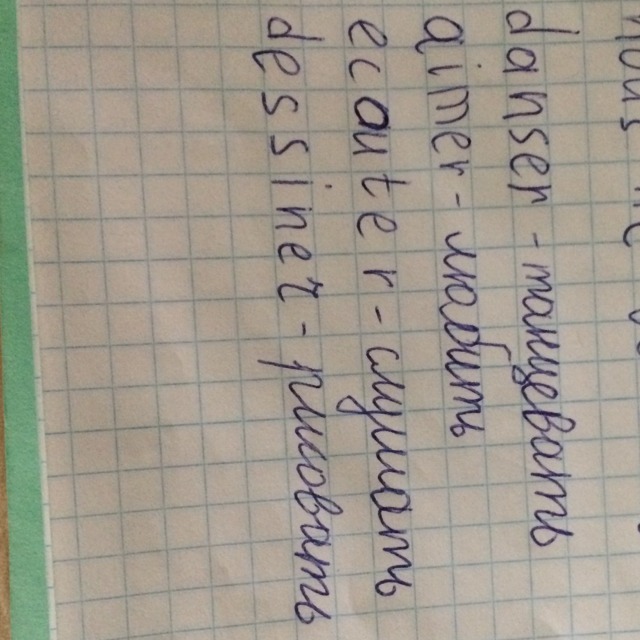 danser - танцевать
aimer - любить
ecouter - слушать
dessiner - рисовать